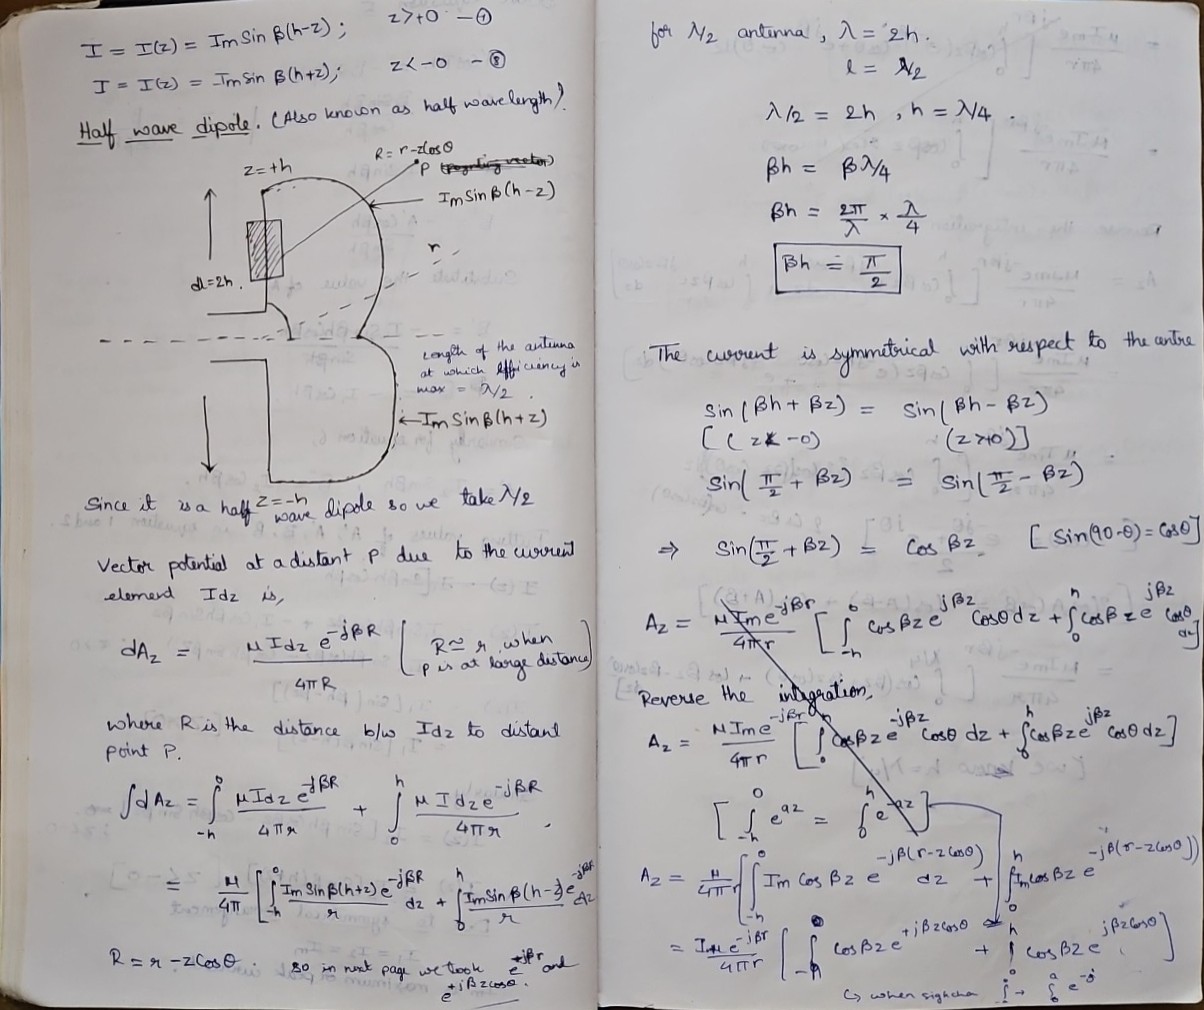 I = I(z) = Im Sin β(h-z) ; z>+0 - ⑦
I = I(z) = Im Sin β(h+z) ; z<-0 - ⑧
Half wave dipole. (Also known as half wavelength).
z=+h
R = r-zcosθ
P
Im Sin β(h-z)
r
dl=2h.
Length of the antenna
at which efficiency is
max = λ/2.
←Im Sin β(h+z)
z=-h
Since it is a half wave dipole so we take λ/2
Vector potential at a distant P due to the current
element Idz is,
dAz = μ Idz e^-jβR / 4πR [R≅r, when P is at large distance]
where R is the distance b/w Idz to distant
point P.
∫dAz = ∫_-h^0 μIdz e^-jβR / 4πr + ∫_0^h μIdz e^-jβR / 4πr ,
= μ/4π [∫_-h^0 Im Sin β(h+z) e^-jβR / r dz + ∫_0^h Im Sin β(h-z) e^-jβR / r dz
R = r - z cosθ . so in next page we took e^+jβr and
e^+jβzcosθ.
for λ/2 antenna, λ = 2h.
l = λ/2
λ/2 = 2h , h = λ/4 .
βh = βλ/4
βh = 2π/λ × λ/4
βh = π/2
The current is symmetrical with respect to the antre
Sin(βh + βz) = Sin(βh - βz)
[(z<-0) (z>+0)]
Sin(π/2 + βz) = Sin(π/2 - βz)
⇒ Sin(π/2 + βz) = Cos βz [Sin(90-θ) = Cosθ]
Az = μIm e^-jβr / 4πr [∫_-h^0 cos βz e^jβz cosθ dz + ∫_0^h cos βz e^jβz cosθ dz]
Reverse the integration,
Az = μIm e^-jβr / 4πr [∫_0^h cos βz e^-jβz cosθ dz + ∫_0^h cos βz e^jβz cosθ dz]
[∫_-h^0 e^az = ∫_0^h e^-az]
Az = μ/4πr [∫_-h^0 Im Cos βz e^-jβ(r-zcosθ) dz + ∫_0^h Im cos βz e^-jβ(r-zcosθ)
= Iμ e^-jβr / 4πr [∫_-h^0 cos βz e^+jβzcosθ + ∫_0^h cos βz e^jβzcosθ]
↳ when sign